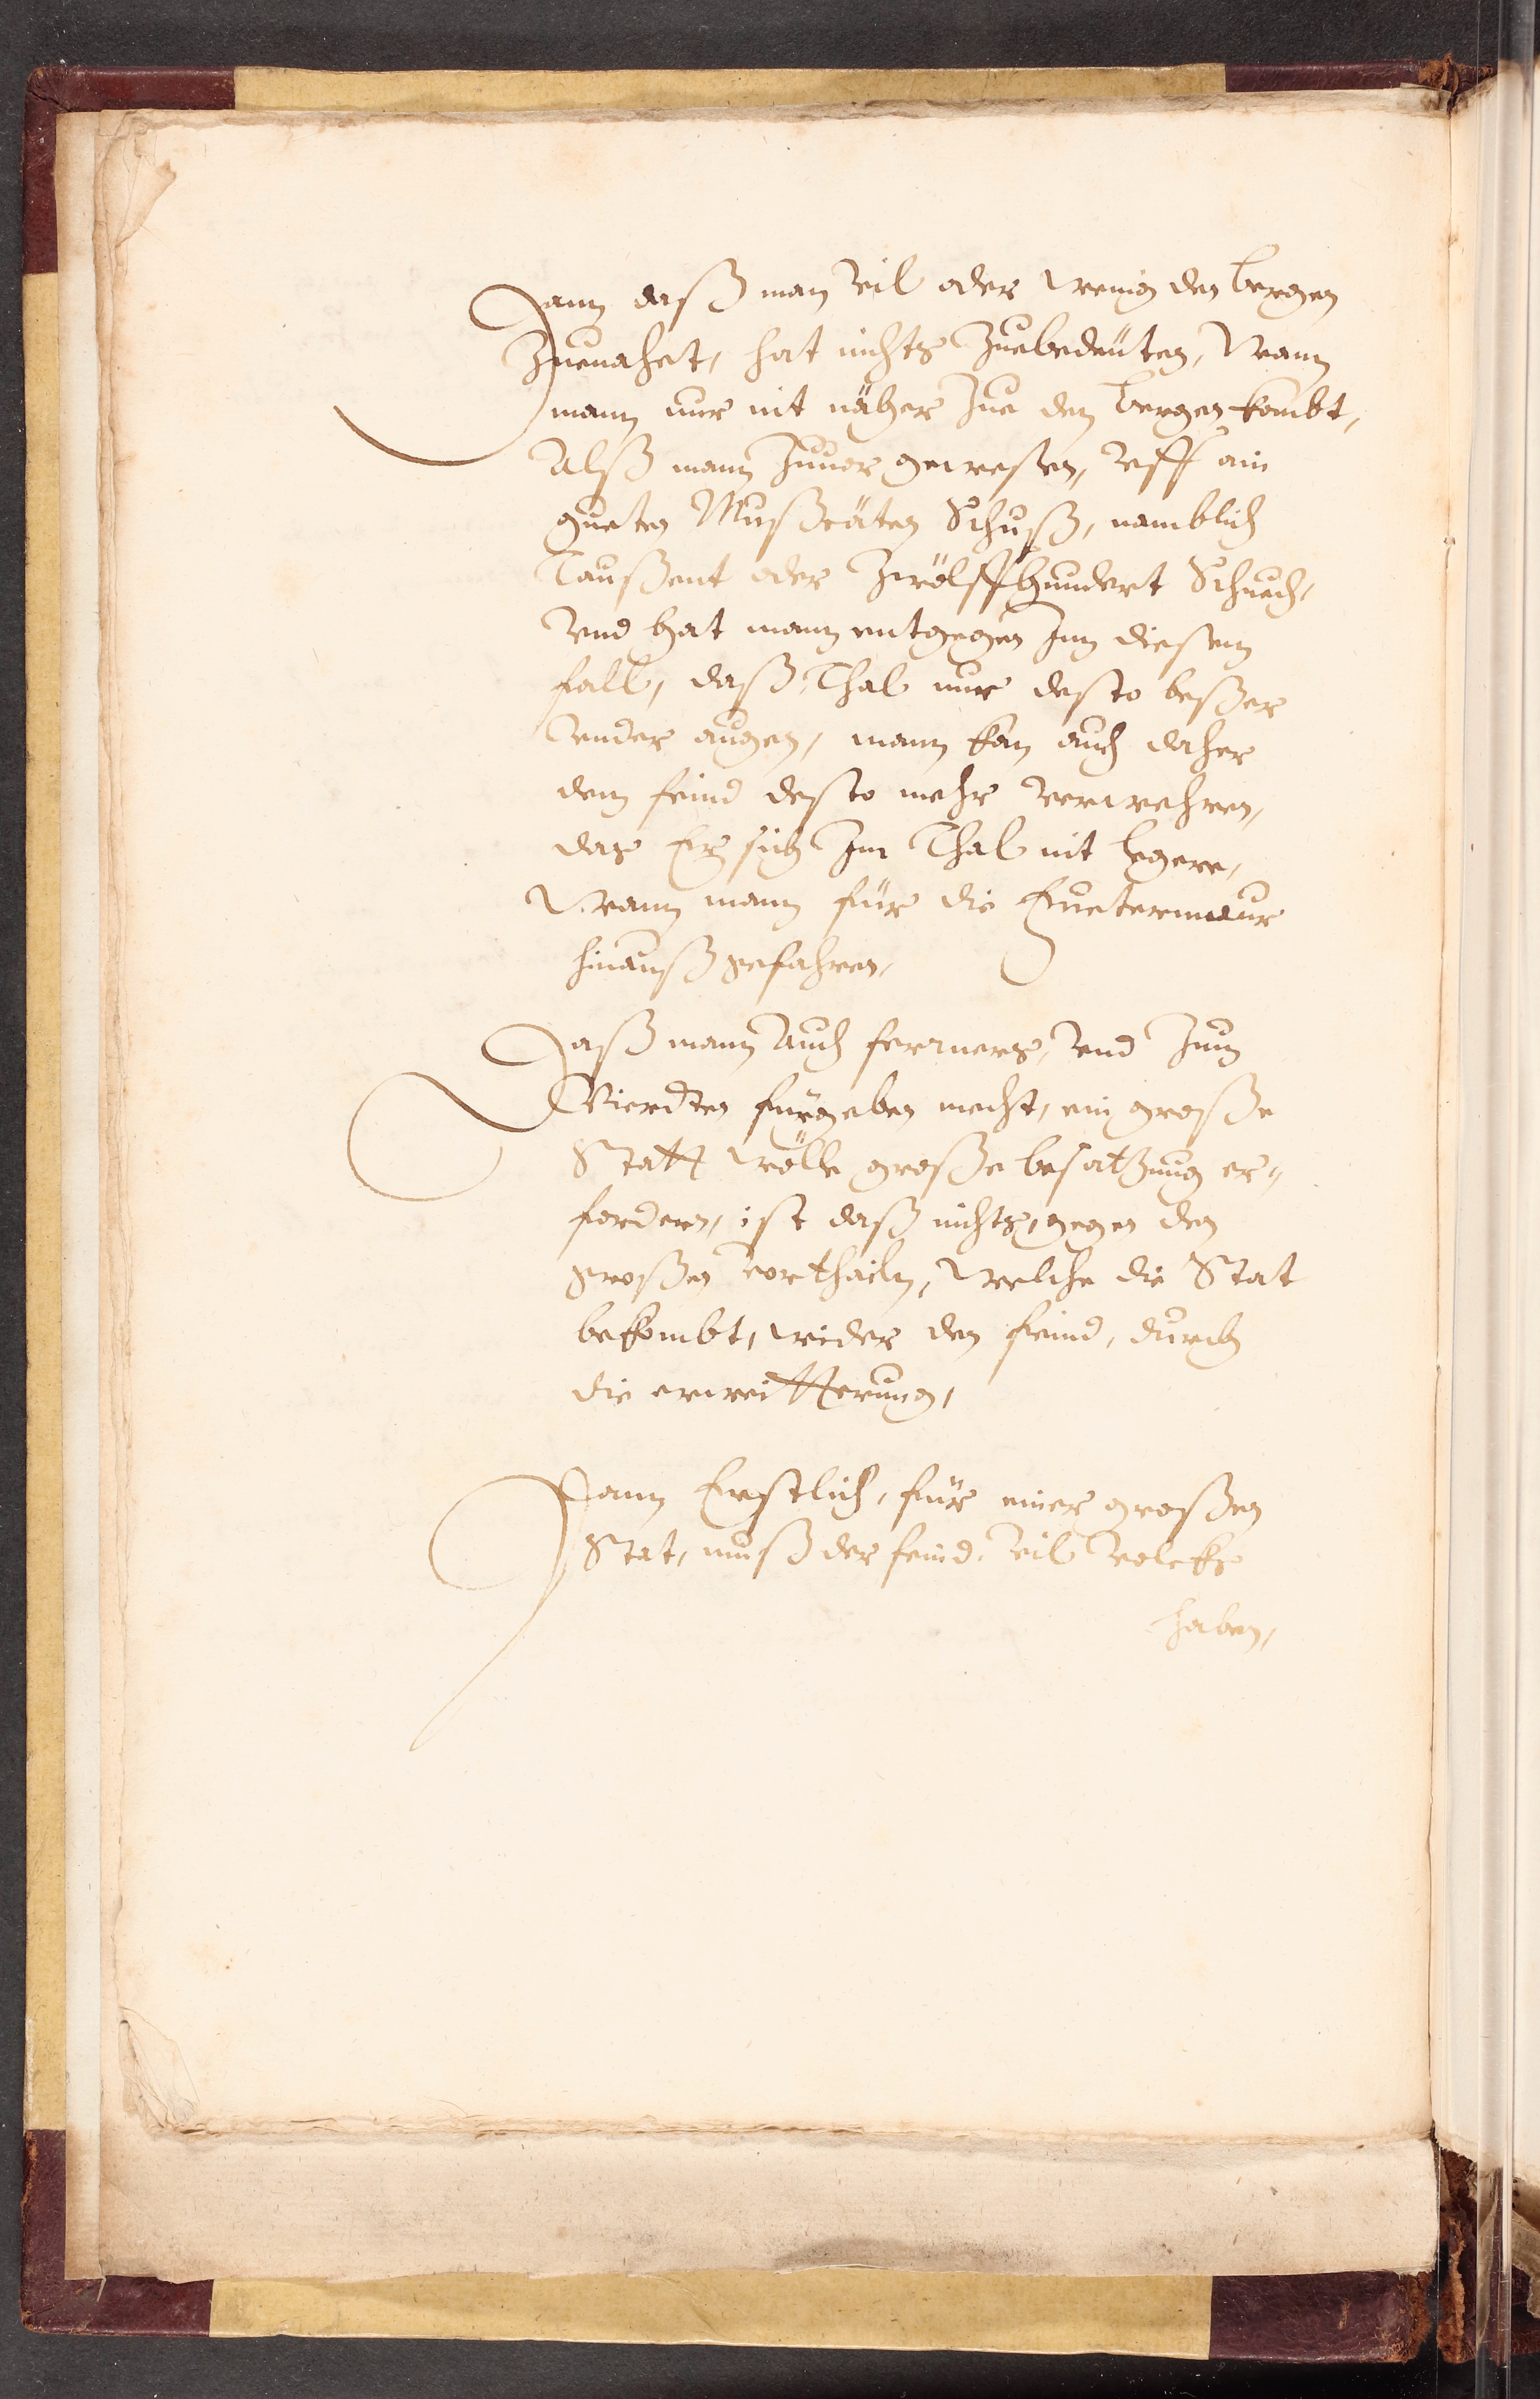 Dann daß man vil oder wenig den bergen
Zuenahet, hat nichts Zuebedeuten, Wann
mann nur nit näher Zue den bergen kombt,
Alß mann Zuuor gewesen, vff ain
gueten Mußcäten Schuß, namblich
Taußent oder Zwölffhundert Schuech,
vnd hat mann entgegen Inn diesem
fall, daß Thal nur desto beßer
vnder augen, mann kan auch daher
dem feind desto mehr verwehren,
das Er sich Im Thal nit legere,
Wann mann für die Fuetermaur
hinauß gefahren,
Daß mann Auch ferrners, vnd Zum
Vierdten fürgeben mecht, ein große
Statt wölle große besatzung er-
fordern, ist daß nichts, gegen den
großen vorthailn, welche die Stat
bekombt, wider den feind, durch
die erweitterung,
Dann Erstlich, für einer großen
Stat, muß der feind, vil volckhs
haben,